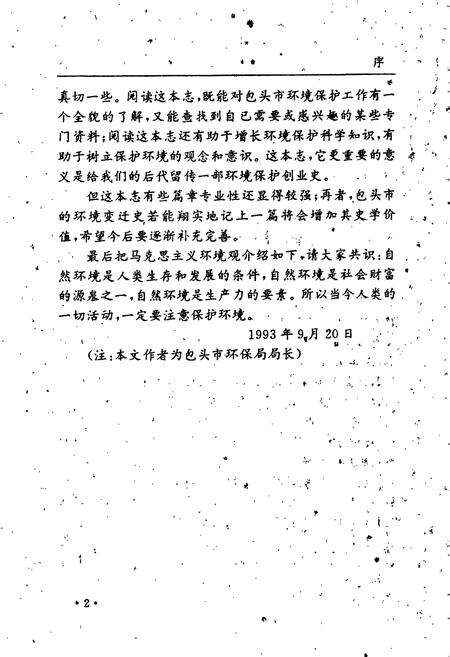 序
真切一些。阅读这本志，既能对包头市环境保护工作有一
个全貌的了解，又能查找到自已需要或感兴趣的某些专
门资料；阅读这本志还有助于增长环境保护科学知识，有
助于树立保护环境的观念和意识。这本志，它更重要的意
义是给我们的后代留传一部环境保护创业史。
但这本志有些篇章专业性还显得较强；再者，包头市
的环境变迁史若能翔实地记上一篇将会增加其史学价
值，希望今后要逐渐补充完善。
最后把马克思主义环境观介绍如下，请大家共识：自
然环境是人类生存和发展的条件，自然环境是社会财富
的源泉之一，自然环境是生产力的要素。所以当今人类的
一切活动，一定要注意保护环境。
1993年9月20日
（注：本文作者为包头市环保局局长）
·2·